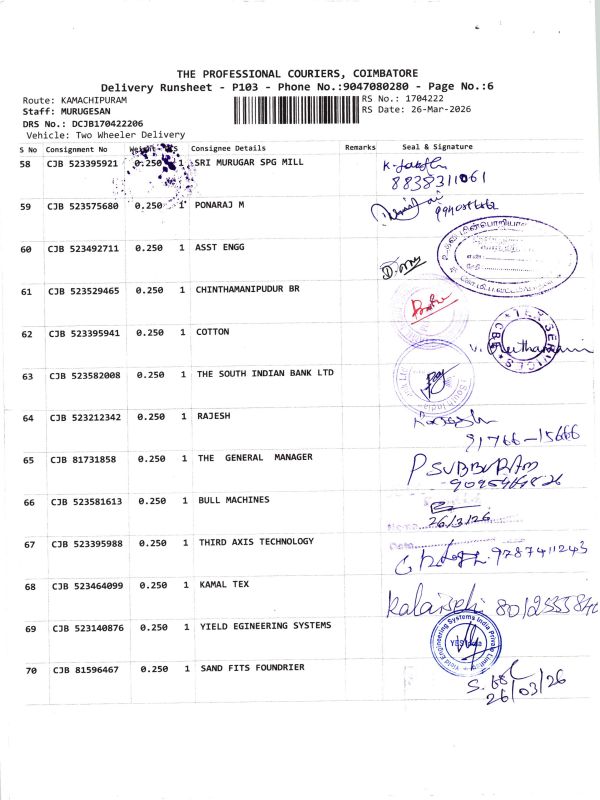 THE PROFESSIONAL COURIERS, COIMBATORE
Delivery Runsheet - P103 - Phone No.:9047080280 - Page No.:6
Route: KAMACHIPURAM
RS No.: 1704222
Staff: MURUGESAN
RS Date: 26-Mar-2026
DRS No.: DCJB170422206
Vehicle: Two Wheeler Delivery
S No Consignment No Consignee Details Remarks Seal & Signature
58 CJB 523395921 0.250 1 SRI MURUGAR SPG MILL
8838311061
59 CJB 523575680 0.250 1 PONARAJ M
60 CJB 523492711 0.250 1 ASST ENGG
61 CJB 523529465 0.250 1 CHINTHAMANIPUDUR BR
62 CJB 523395941 0.250 1 COTTON
63 CJB 523582008 0.250 1 THE SOUTH INDIAN BANK LTD
64 CJB 523212342 0.250 1 RAJESH
91766-15666
65 CJB 81731858 0.250 1 THE GENERAL MANAGER
P SUBBURAM
66 CJB 523581613 0.250 1 BULL MACHINES
26/3/26
67 CJB 523395988 0.250 1 THIRD AXIS TECHNOLOGY
9787411243
68 CJB 523464099 0.250 1 KAMAL TEX
69 CJB 523140876 0.250 1 YIELD EGINEERING SYSTEMS
Yield Engineering Systems India Private Limited
70 CJB 81596467 0.250 1 SAND FITS FOUNDRIER
26/03/26